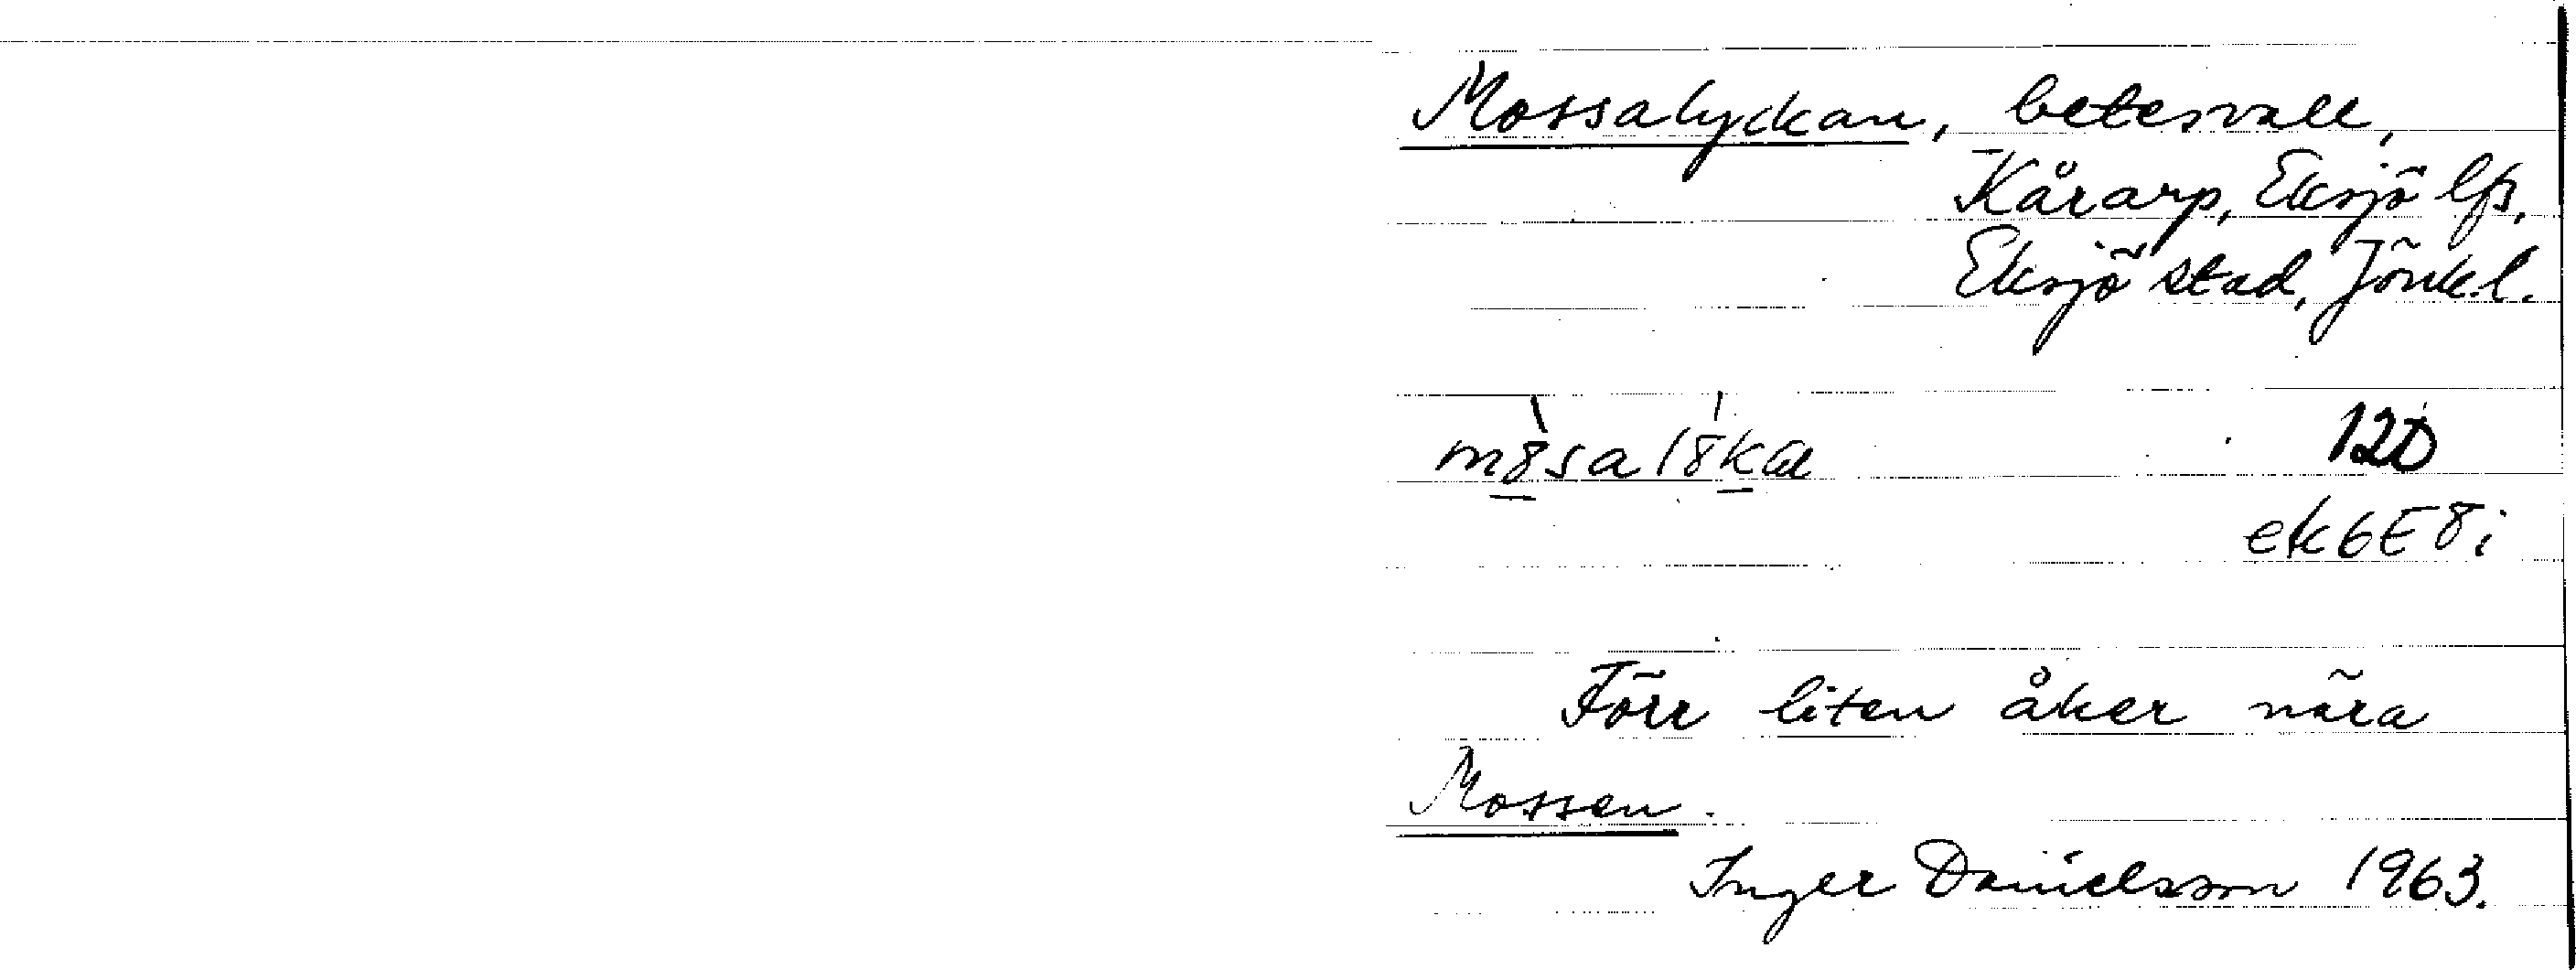 Mossalyckan, betesvall,
Kårarp, Eksjö lfs,
Eksjö stad, Jönk.l.
120
ek6E8i
Förr liten åker nära
Mossen.
Inger Danielsson 1963.